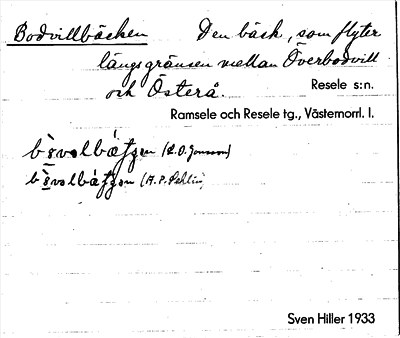 Bodvillbäcken Den bäck, som flyter
längs gränsen mellan Överbodvill
och Österå. Resele s:n.
Ramsele och Resele tg., Västernorrl. l.
(L.O. Jonsson)
(A.P. Sehlin)
Sven Hiller 1933